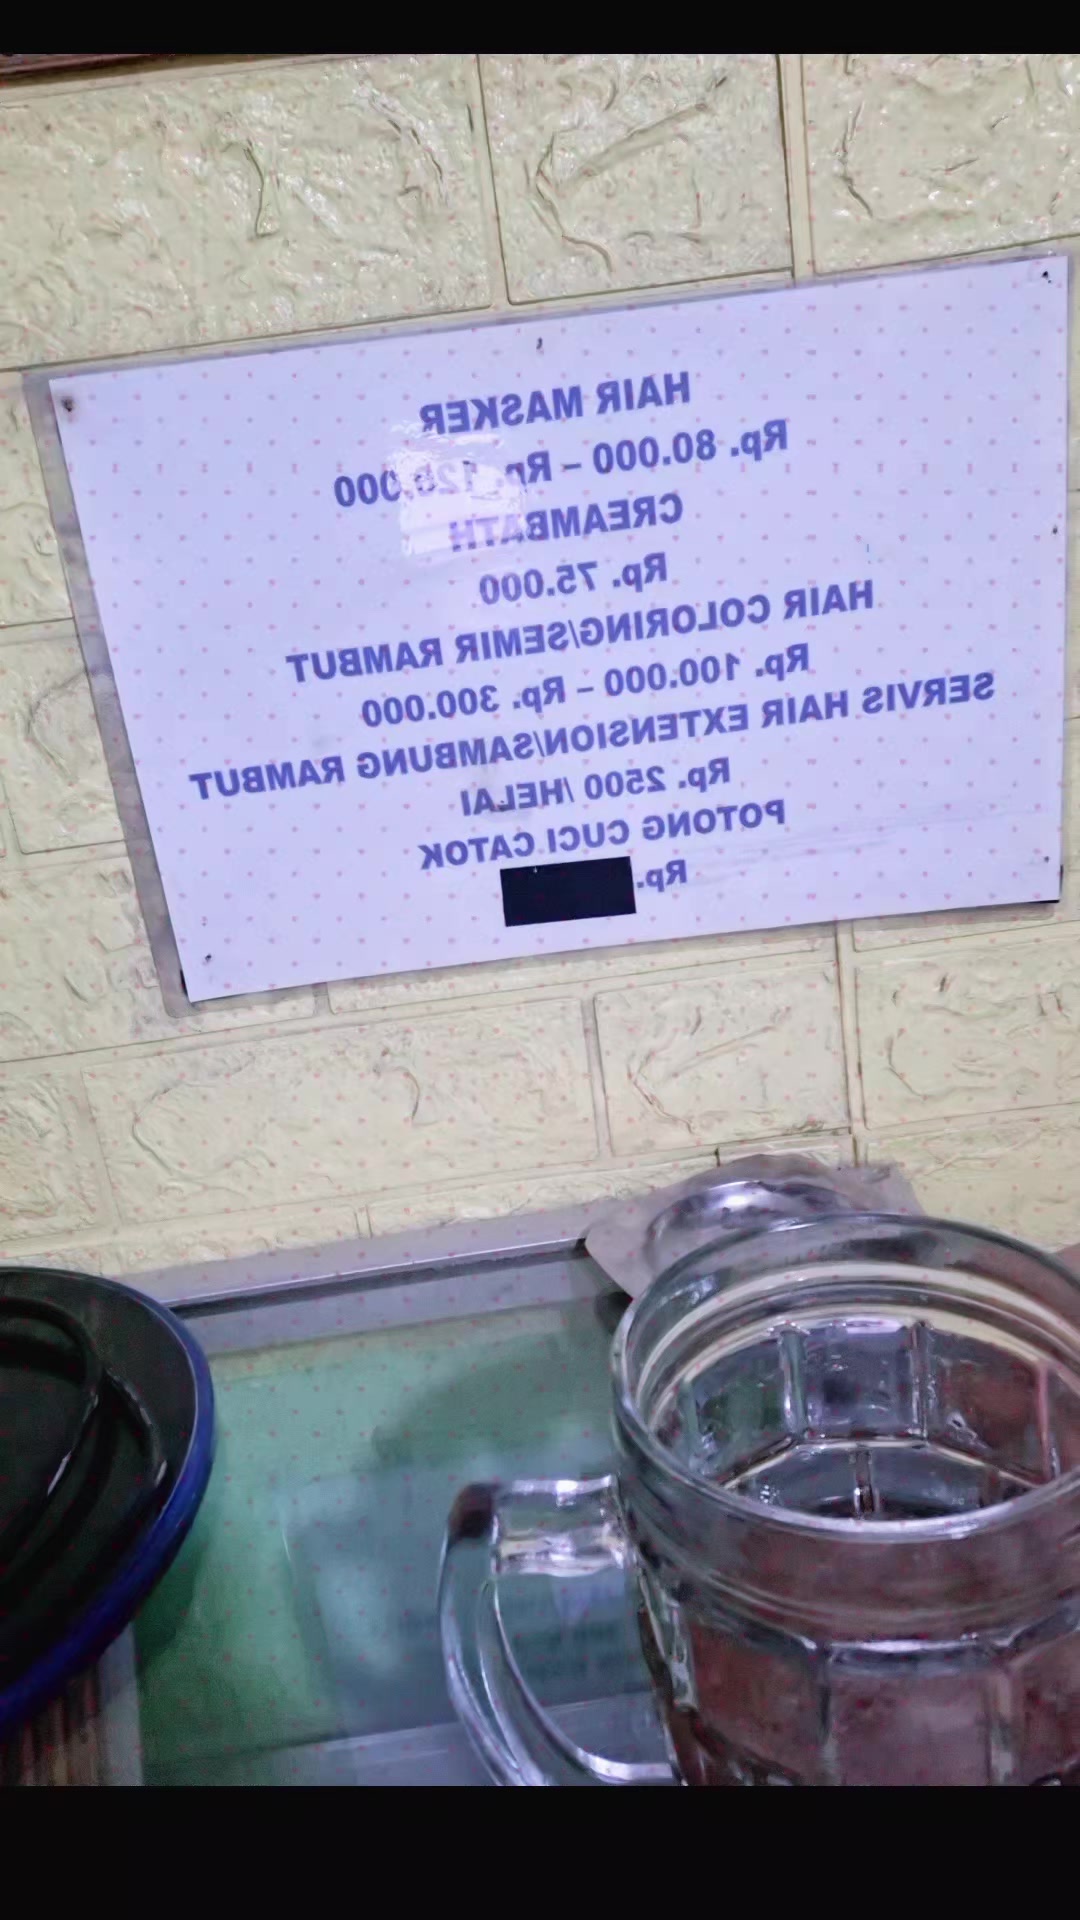 HAIR MASKER
Rp. 80.000 – Rp. 120.000
CREAMBATH
Rp. 75.000
HAIR COLORING/SEMIR RAMBUT
Rp. 100.000 – Rp. 300.000
SERVIS HAIR EXTENSION/SAMBUNG RAMBUT
Rp. 2500 /HELAI
POTONG CUCI CATOK
Rp.